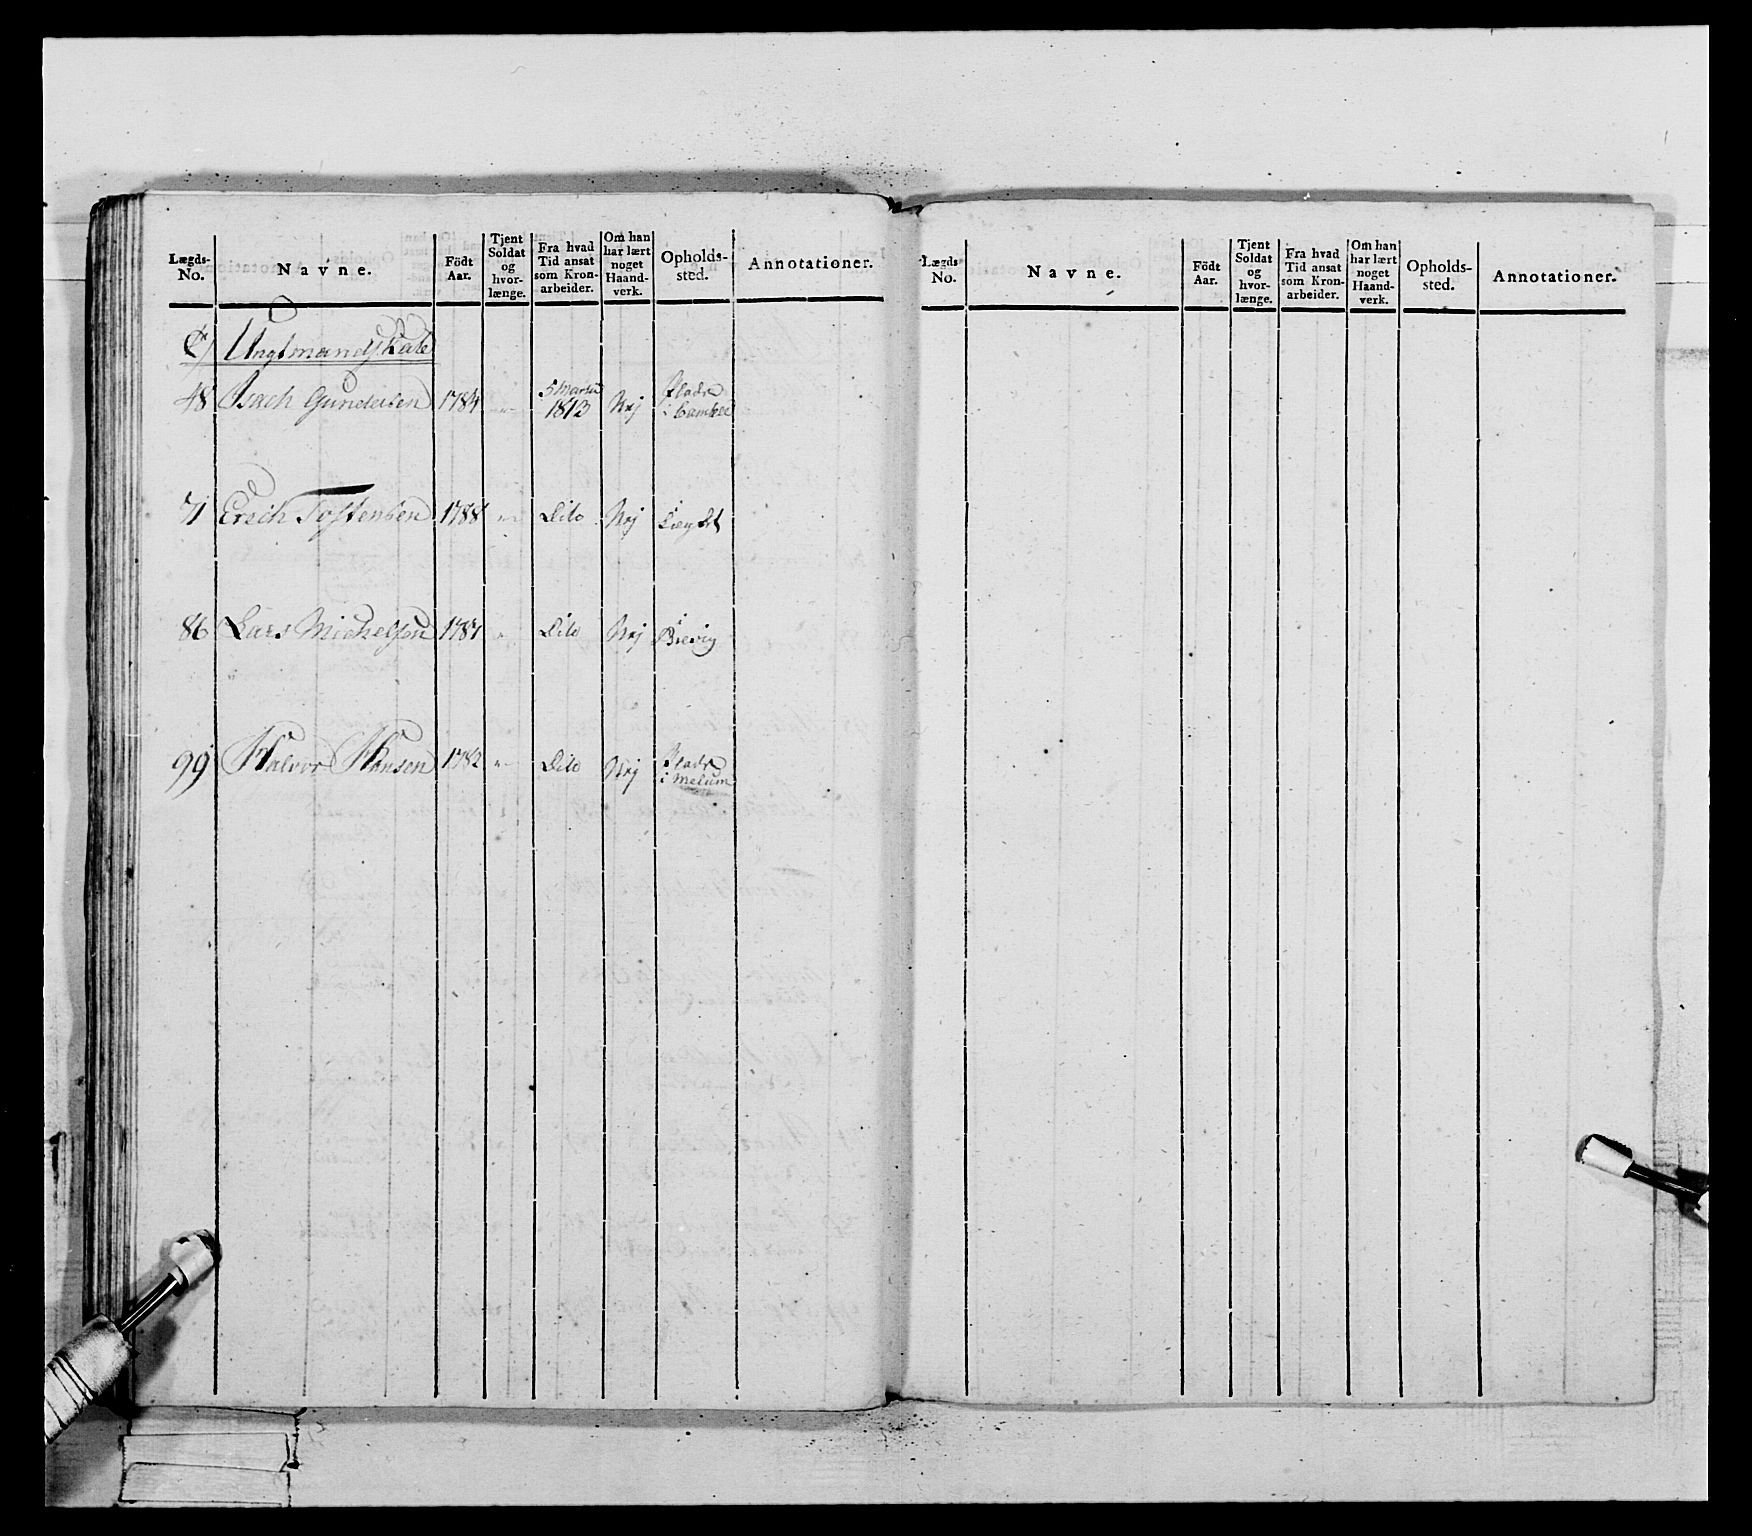 Lægds- No. Navne. Födt Aar. Tjent Soldat og hvor- længe. Fra hvad Tid ansat som Kron- arbeider. Om han har lært noget Haand- verk. Opholds- sted. Annotationer.
C)
48 Isach Gundersen 1784 5 Martii 1813 Nej i Bamble
71 Erich Tostensen 1788 Dito Nej i
86 Lars Michelsen 1787 Dito Nej i Brevig
99 Halvor Hansen 1782 Dito Nej i Melum
Lægds- No. Navne. Födt Aar. Tjent Soldat og hvor- længe. Fra hvad Tid ansat som Kron- arbeider. Om han har lært noget Haand- verk. Opholds- sted. Annotationer.